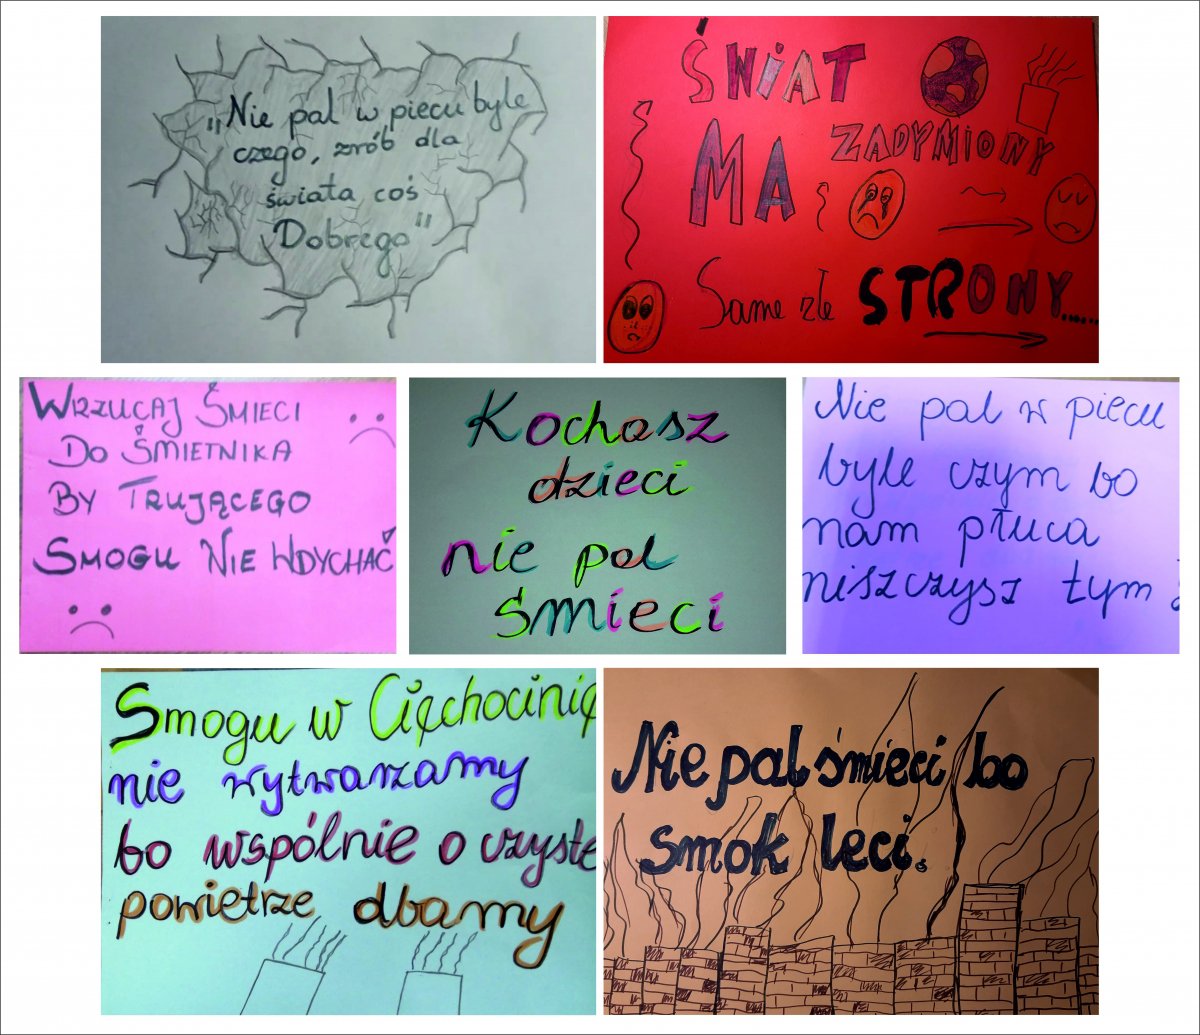 "Nie pal w piecu byle
czego, zrób dla
świata coś
Dobrego"
ŚWIAT
MA ZADYMIONY
Same złe STRONY......
WRZUCAJ ŚMIECI
DO ŚMIETNIKA
BY TRUJĄCEGO
SMOGU NIE WDYCHAĆ
Kochasz
dzieci
nie pal
śmieci
Nie pal w piecu
byle czym bo
nam płuca
niszczysz tym
Smogu w Cięchocinię
nie wytwarzamy
bo wspólnie o czyste
powietrze dbamy
Nie pal śmieci bo
smok leci.